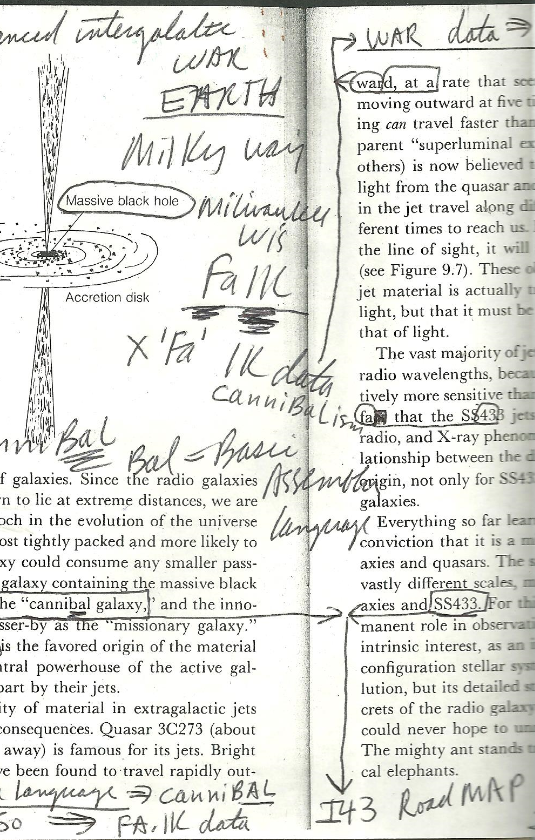 intergalatic
WAR
EARTH
Milky way
Massive black hole
Milwaukee
Wis
Accretion disk
FalK
X 'Fa' lK data
canniBalism
BAL
Bal = Basic
Assembly
language
f galaxies. Since the radio galaxies
n to lie at extreme distances, we are
och in the evolution of the universe
ost tightly packed and more likely to
xy could consume any smaller pass-
galaxy containing the massive black
he "cannibal galaxy," and the inno-
sser-by as the "missionary galaxy."
is the favored origin of the material
ntral powerhouse of the active gal-
part by their jets.
ity of material in extragalactic jets
consequences. Quasar 3C273 (about
away) is famous for its jets. Bright
ve been found to travel rapidly out-
language ⇒ canniBAL
so ⇒ FA,lK data
WAR data ⇒
ward, at a rate that see
moving outward at five ti
ing can travel faster than
parent "superluminal ex
others) is now believed t
light from the quasar and
in the jet travel along di
ferent times to reach us.
the line of sight, it will
(see Figure 9.7). These o
jet material is actually t
light, but that it must be
that of light.
The vast majority of je
radio wavelengths, becau
tively more sensitive than
fa that the SS433 jets
radio, and X-ray phenom
lationship between the d
origin, not only for SS43
galaxies.
Everything so far lear
conviction that it is a m
axies and quasars. The s
vastly different scales, m
axies and SS433. For th
manent role in observati
intrinsic interest, as an i
configuration stellar sys
lution, but its detailed s
crets of the radio galaxy
could never hope to un
The mighty ant stands t
cal elephants.
I43 Road MAP